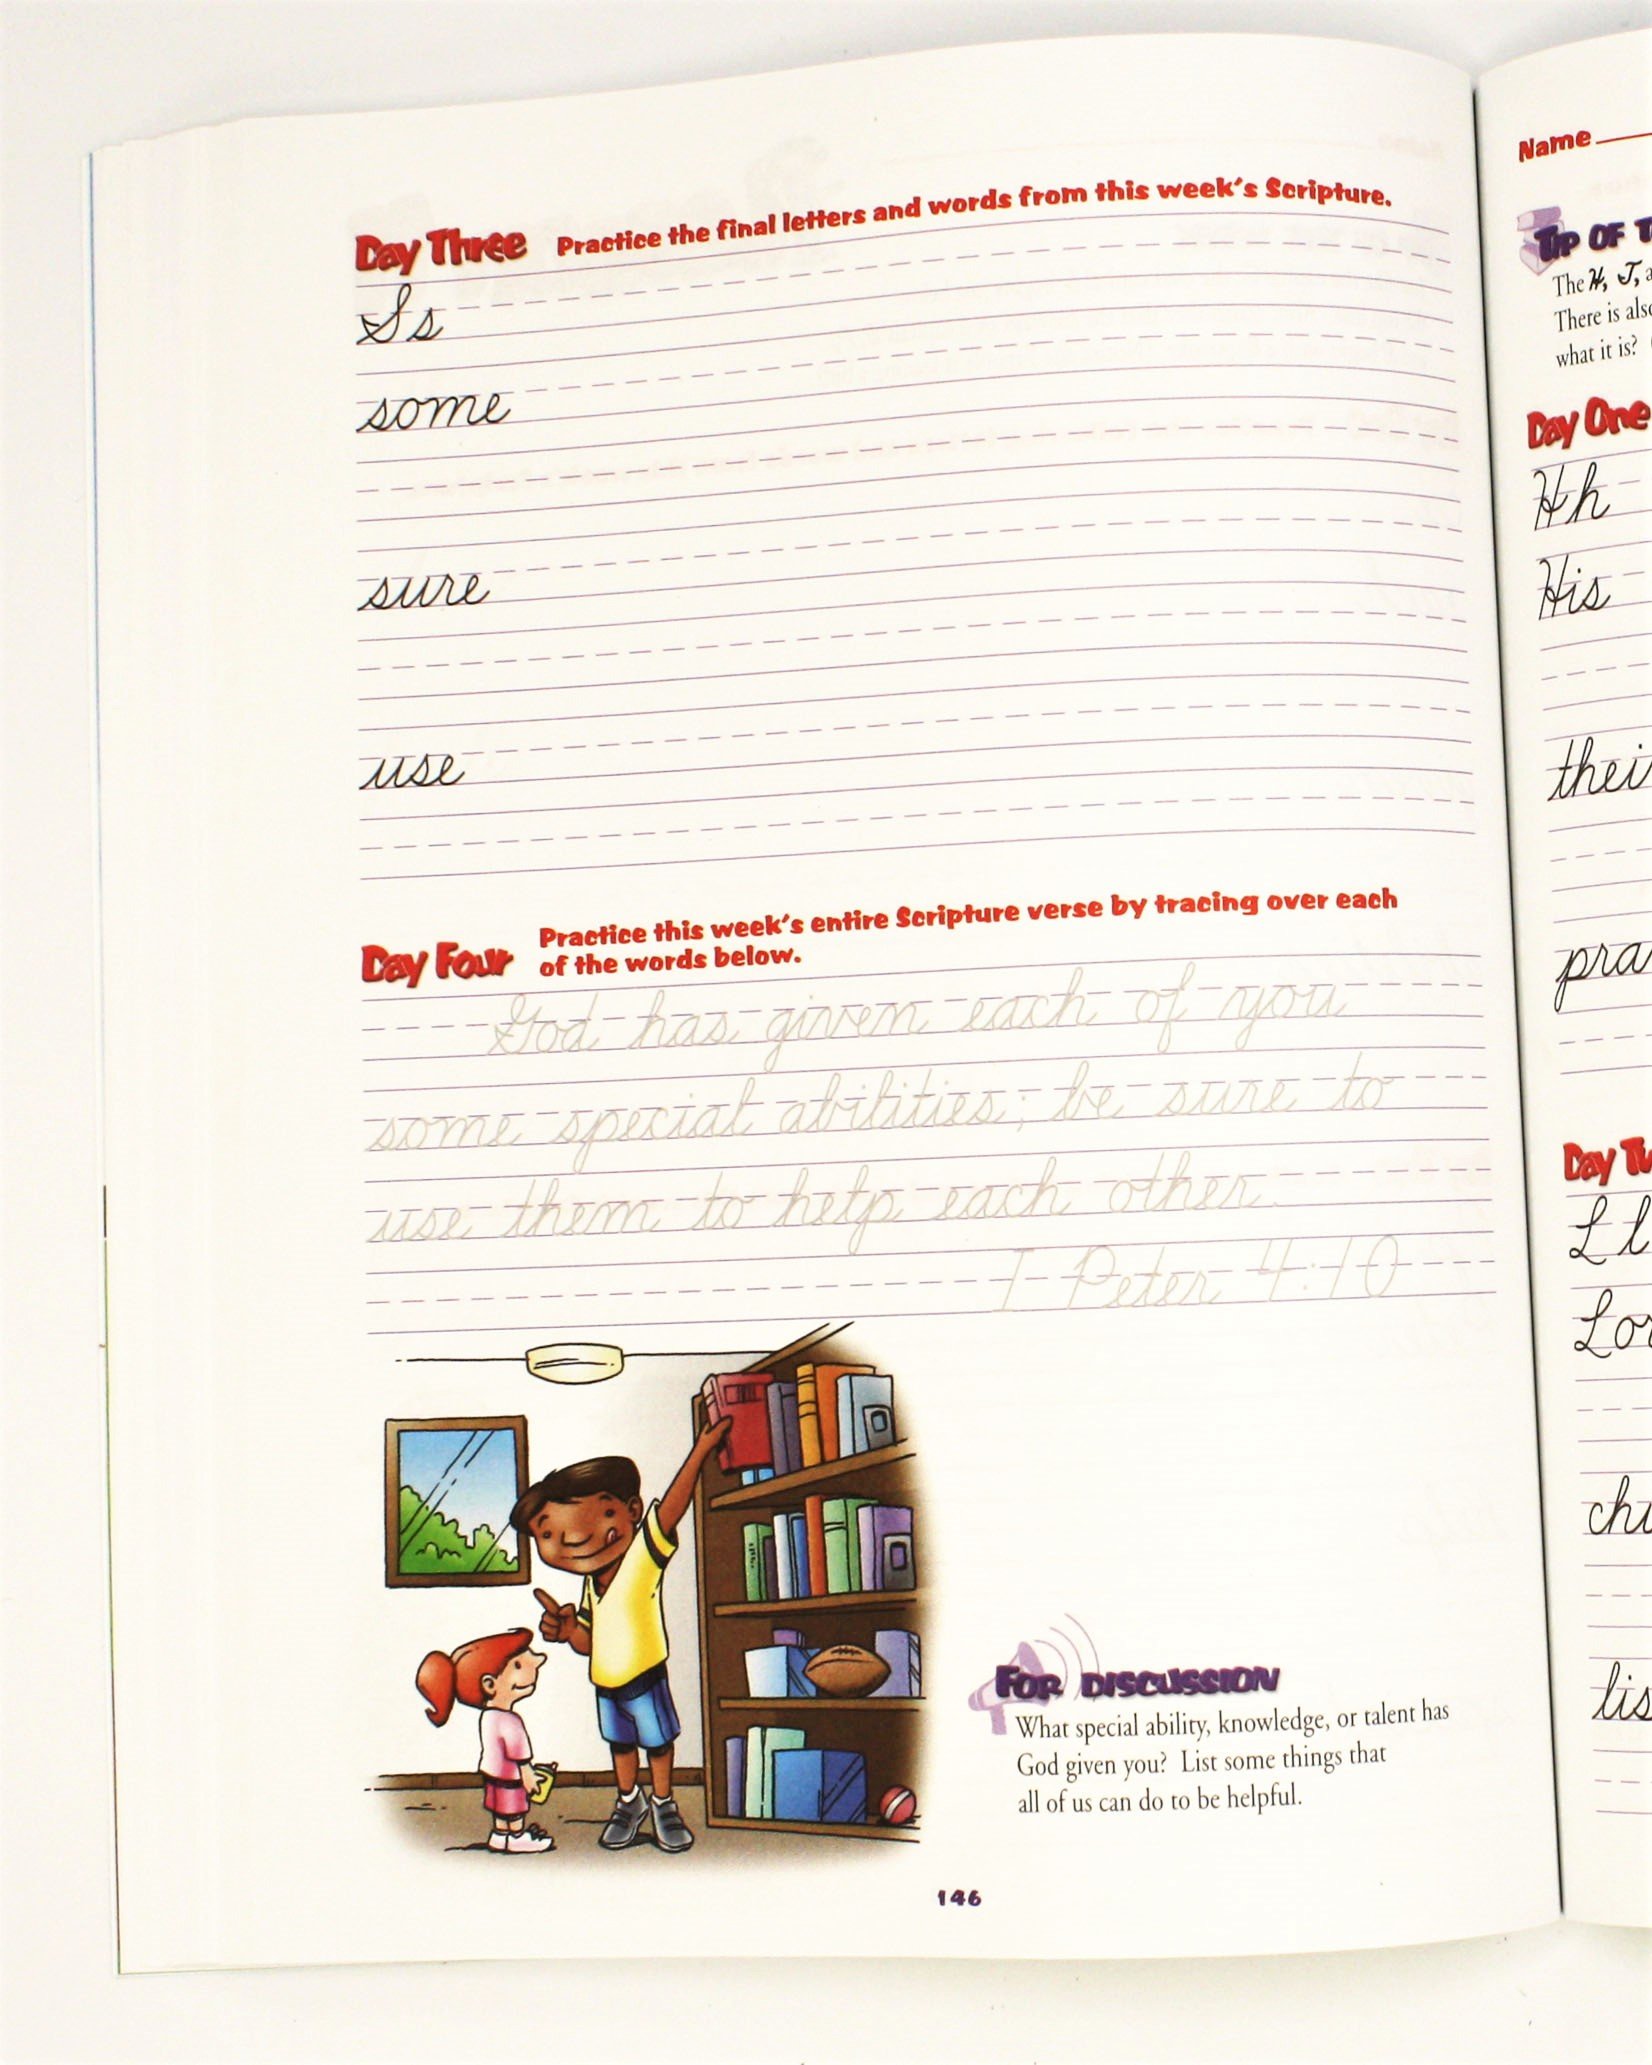 Day Three Practice the final letters and words from this week's Scripture.
Ss
some
sure
use
Day Four Practice this week's entire Scripture verse by tracing over each
of the words below.
God has given each of you
some special abilities; be sure to
use them to help each other.
I Peter 4:10
FOR DISCUSSION
What special ability, knowledge, or talent has
God given you? List some things that
all of us can do to be helpful.
146
Name
TIP OF
The H, T,
There is
what it is?
Day One
Hh
His
Day
Ll